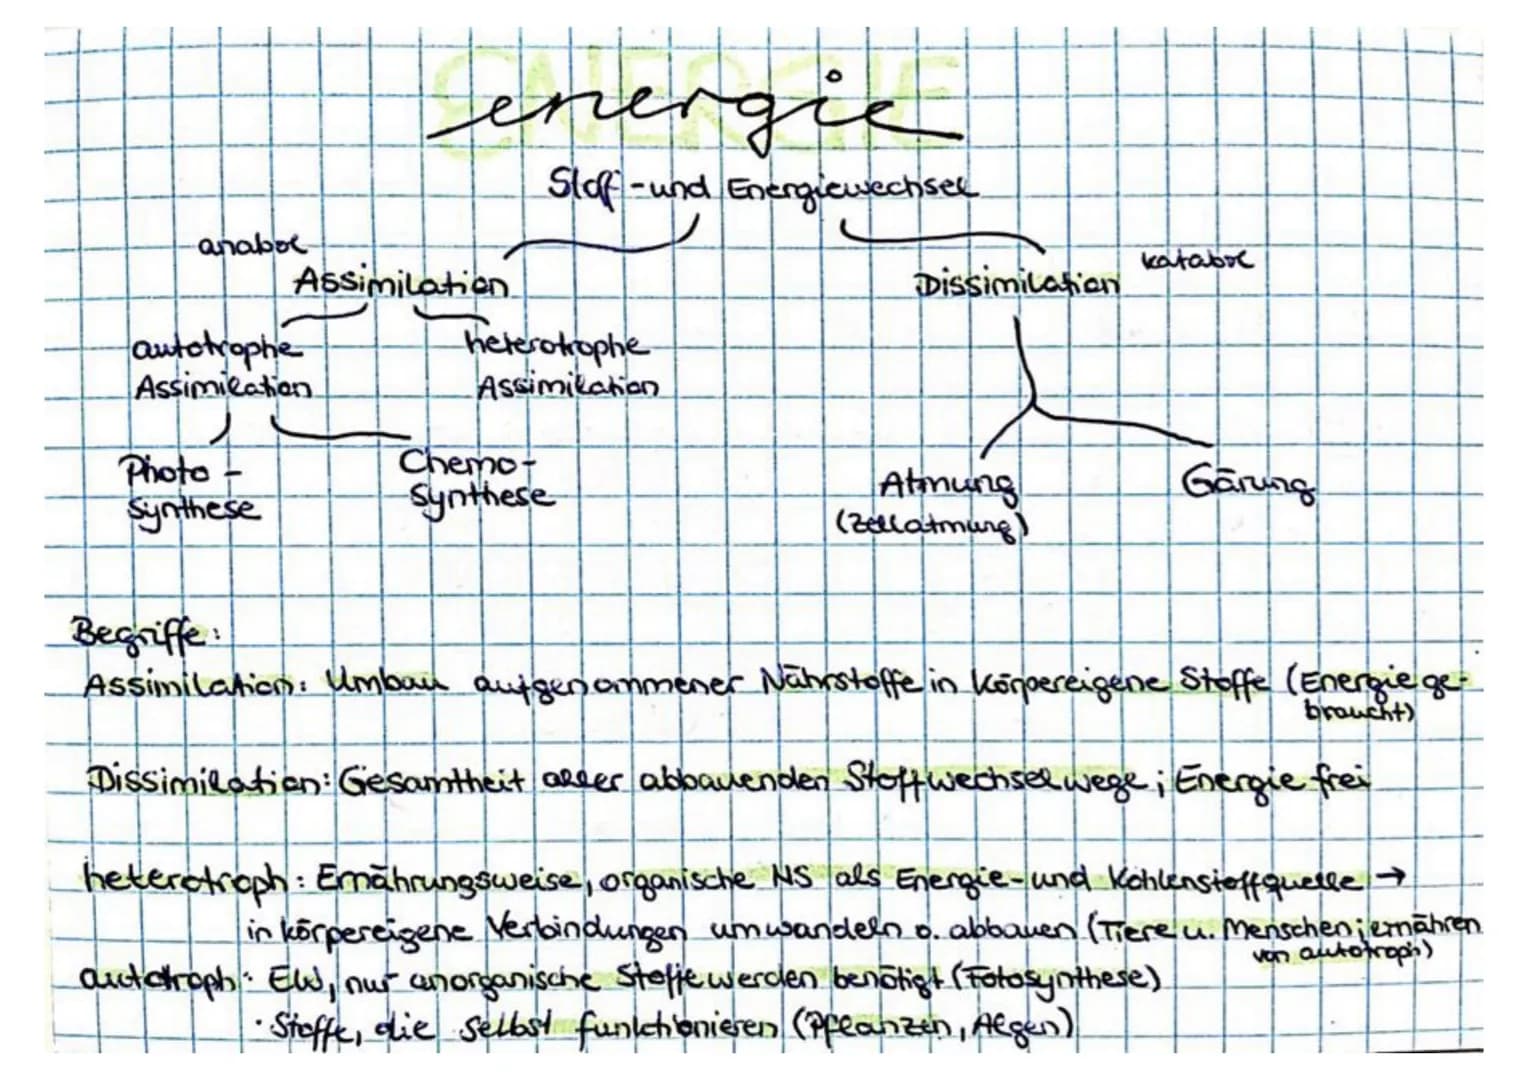 ENERGIE
energie
Stoff-und Energiewechsel
anabol
Assimilation
katabol
Dissimilation
autotrophe
Assimilation
heterotrophe
Assimilation
Photo-
synthese
Chemo-
synthese
Atmung
(Zellatmung)
Gärung
Begriffe:
Assimilation: Umbau aufgenommener Nährstoffe in körpereigene Stoffe (Energie ge-
braucht)
Dissimilation: Gesamtheit aller abbauenden Stoffwechselwege; Energie frei
heterotroph: Ernährungsweise, organische NS als Energie-und Kohlenstoffquelle →
in körpereigene Verbindungen umwandeln o. abbauen (Tiere u. Menschen; ernähren
von autotroph)
autotroph: EW, nur anorganische Stoffe werden benötigt (Fotosynthese)
· Stoffe, die selbst funktionieren (Pflanzen, Algen)